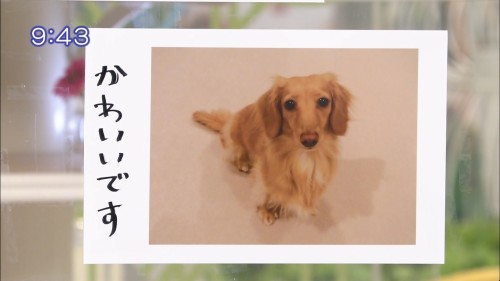 9:43
かわいいです